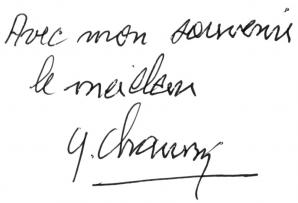 Avec mon souvenir
le meilleur